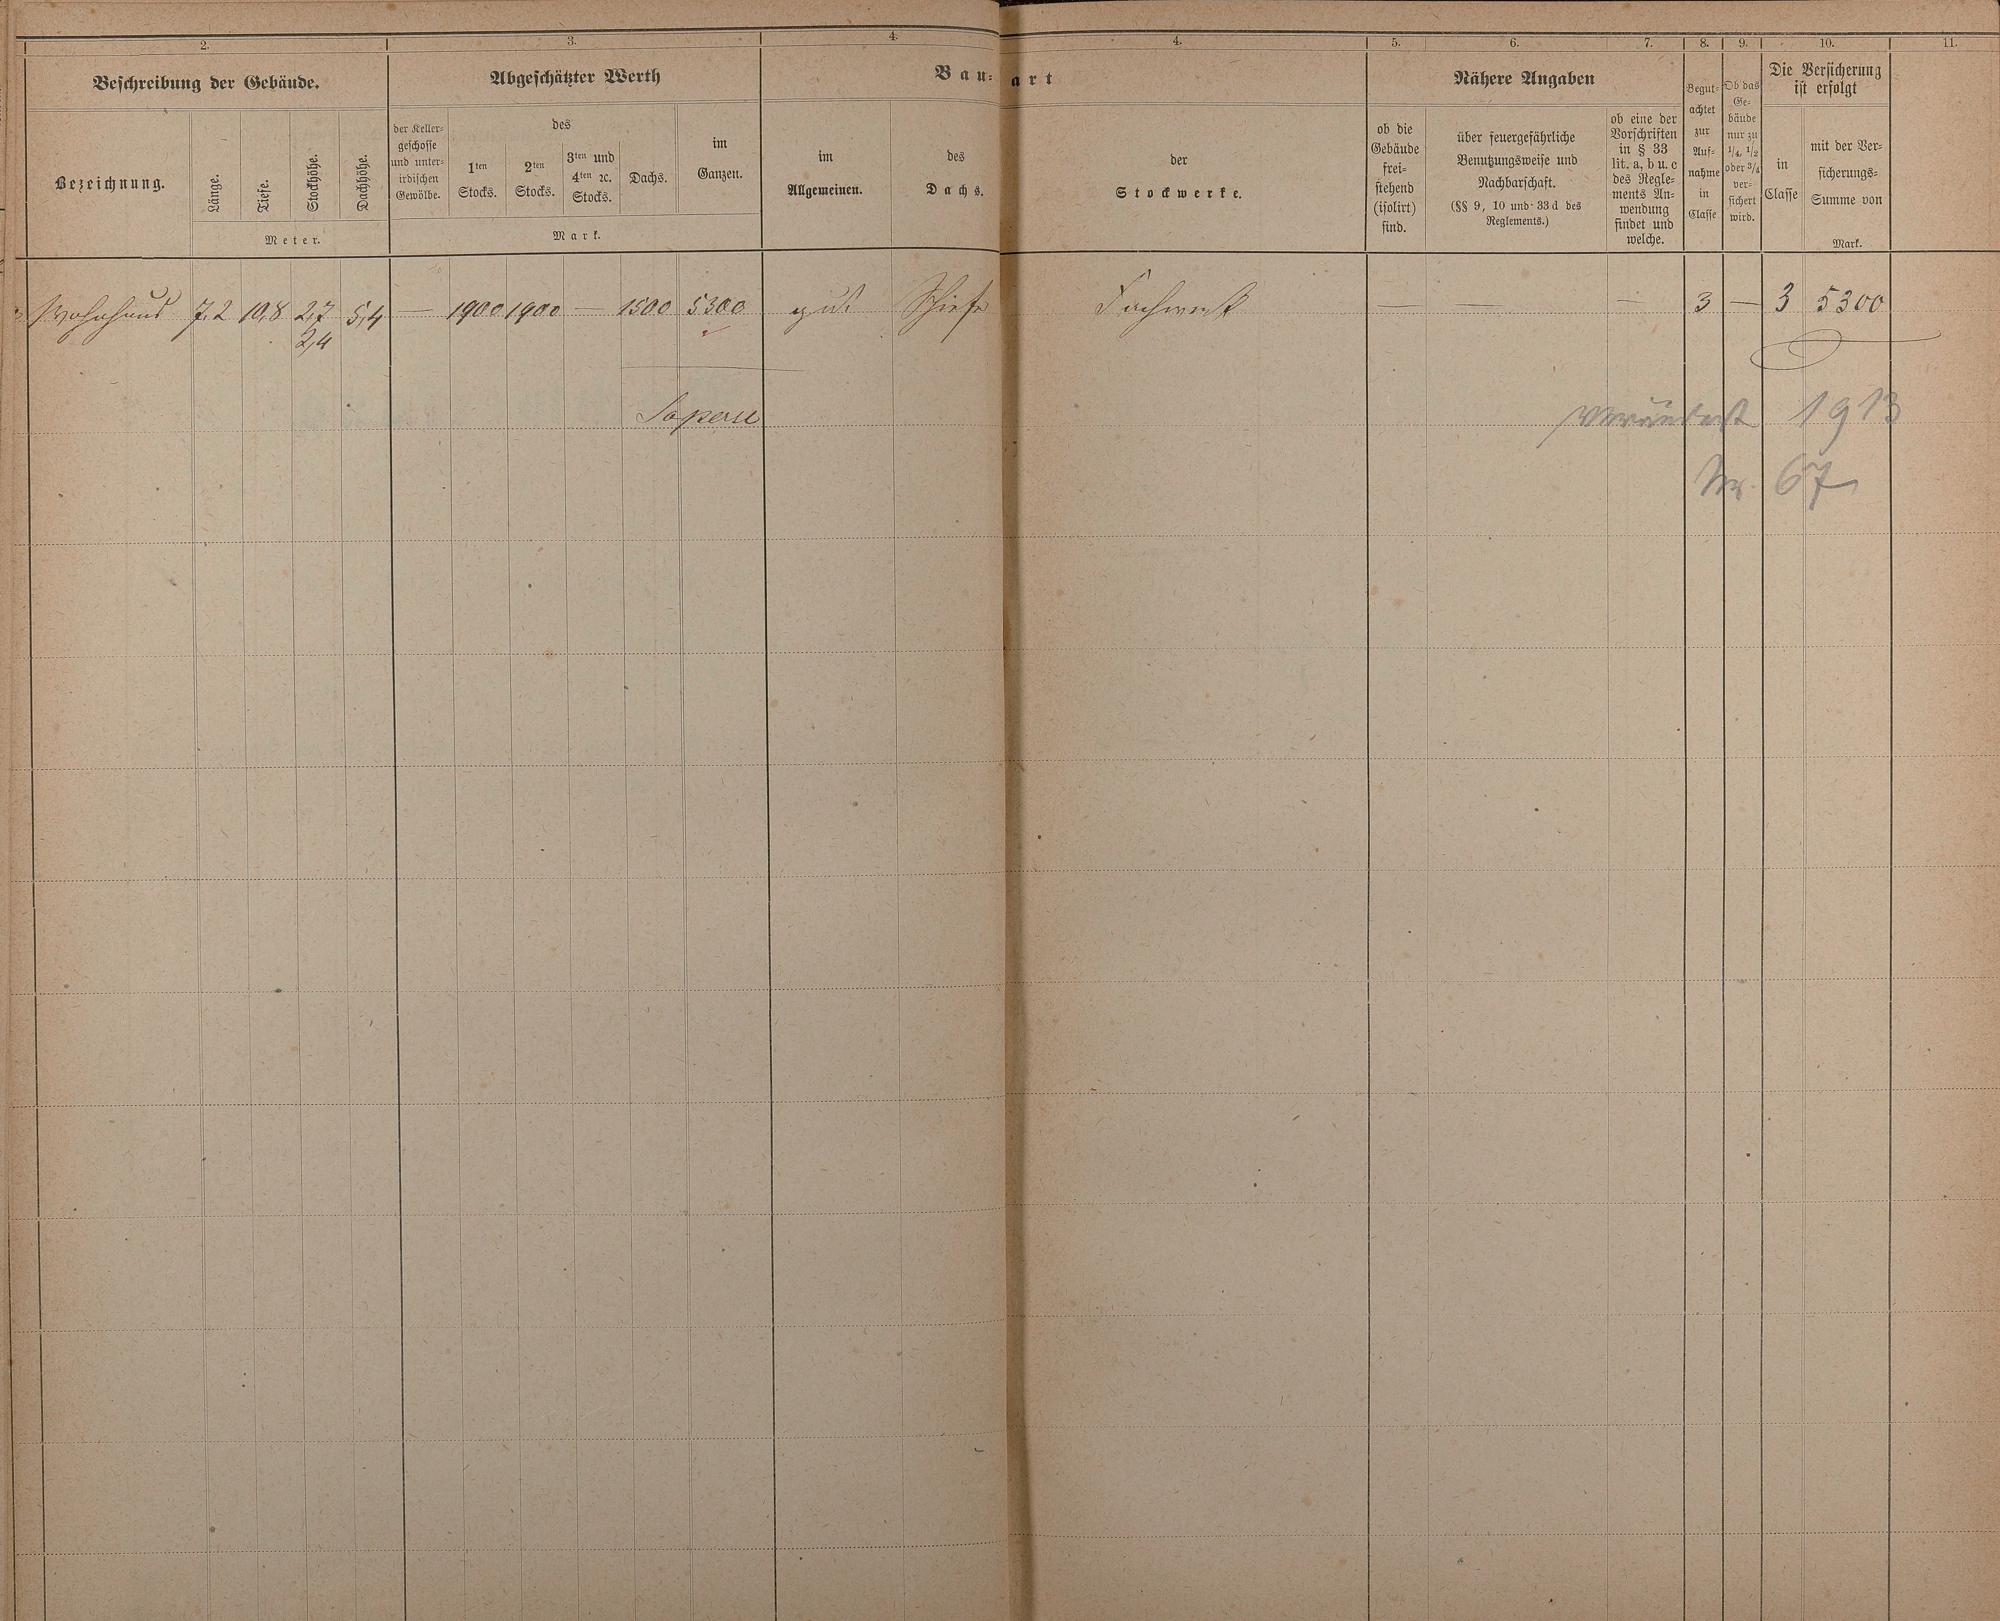 2. 3. 4. 4. 5. 6. 7. 8. 9. 10. 11.
Beschreibung der Gebäude.
Bezeichnung.
Länge.
Tiefe.
Stockhöhe.
Dachhöhe.
Meter.
Abgeschätzter Werth
der Keller-
geschosse
und unter-
irdischen
Gewölbe.
des
1ten
Stocks.
2ten
Stocks.
3ten und
4ten ꝛc.
Stocks.
Dachs.
im
Ganzen.
Mark.
Bau-art
im
Allgemeinen.
des
Dachs.
der
Stockwerke.
Nähere Angaben
ob die
Gebäude
frei-
stehend
(isolirt)
sind.
über feuergefährliche
Benutzungsweise und
Nachbarschaft.
(§§ 9, 10 und 33 d des
Reglements.)
ob eine der
Vorschriften
in § 33
lit. a, b u. c
des Regle-
ments An-
wendung
findet und
welche.
Begut-
achtet
zur
Auf-
nahme
in
Classe
Ob das
Ge-
bäude
nur zu
1/4, 1/2
oder 3/4
ver-
sichert
wird.
Die Versicherung
ist erfolgt
in
Classe
mit der Ver-
sicherungs-
Summe von
Mark.
Wohnhaus 7,2 10,8 2,7 5,4 — 1900 1900 — 1500 5300 gut Schiefer Fachwerk — — — 3 — 3 5300
2,4
verändert 1913
Nr. 67